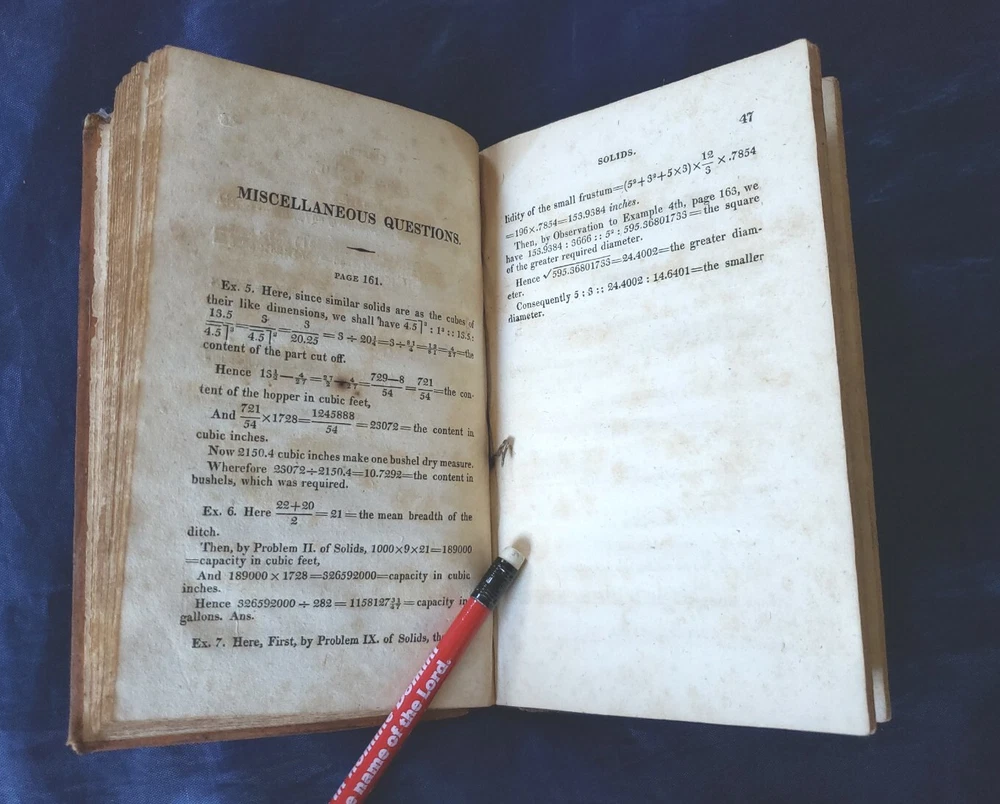 MISCELLANEOUS QUESTIONS.
PAGE 161.
Ex. 5. Here, since similar solids are as the cubes of
their like dimensions, we shall have 4.5⌉³ : 1³ :: 13.5 :
13.5/4.5⌉³ = 3/4.5⌉² = 3/20.25 = 3 ÷ 20¼ = 3 ÷ 81/4 = 12/81 = 4/27 = the
content of the part cut off.
Hence 13½ — 4/27 = 27/2 — 4/27 = 729—8/54 = 721/54 = the con-
tent of the hopper in cubic feet,
And 721/54 × 1728 = 1245888/54 = 23072 = the content in
cubic inches.
Now 2150.4 cubic inches make one bushel dry measure.
Wherefore 23072 ÷ 2150.4 = 10.7292 = the content in
bushels, which was required.
Ex. 6. Here 22+20/2 = 21 = the mean breadth of the
ditch.
Then, by Problem II. of Solids, 1000×9×21=189000
=capacity in cubic feet,
And 189000 × 1728 = 326592000 = capacity in cubic
inches.
Hence 326592000 ÷ 282 = 1158127 = capacity in
gallons. Ans.
Ex. 7. Here, First, by Problem IX. of Solids,
47
SOLIDS.
lidity of the small frustum=(5²+3²+5×3)×12/3×.7854
=196×.7854=153.9384 inches.
Then, by Observation to Example 4th, page 163, we
have 153.9384 : 3666 :: 5² : 595.36801733 = the square
of the greater required diameter.
Hence √595.36801733=24.4002=the greater diam-
eter.
Consequently 5 : 3 :: 24.4002 : 14.6401=the smaller
diameter.
e name of the Lord.